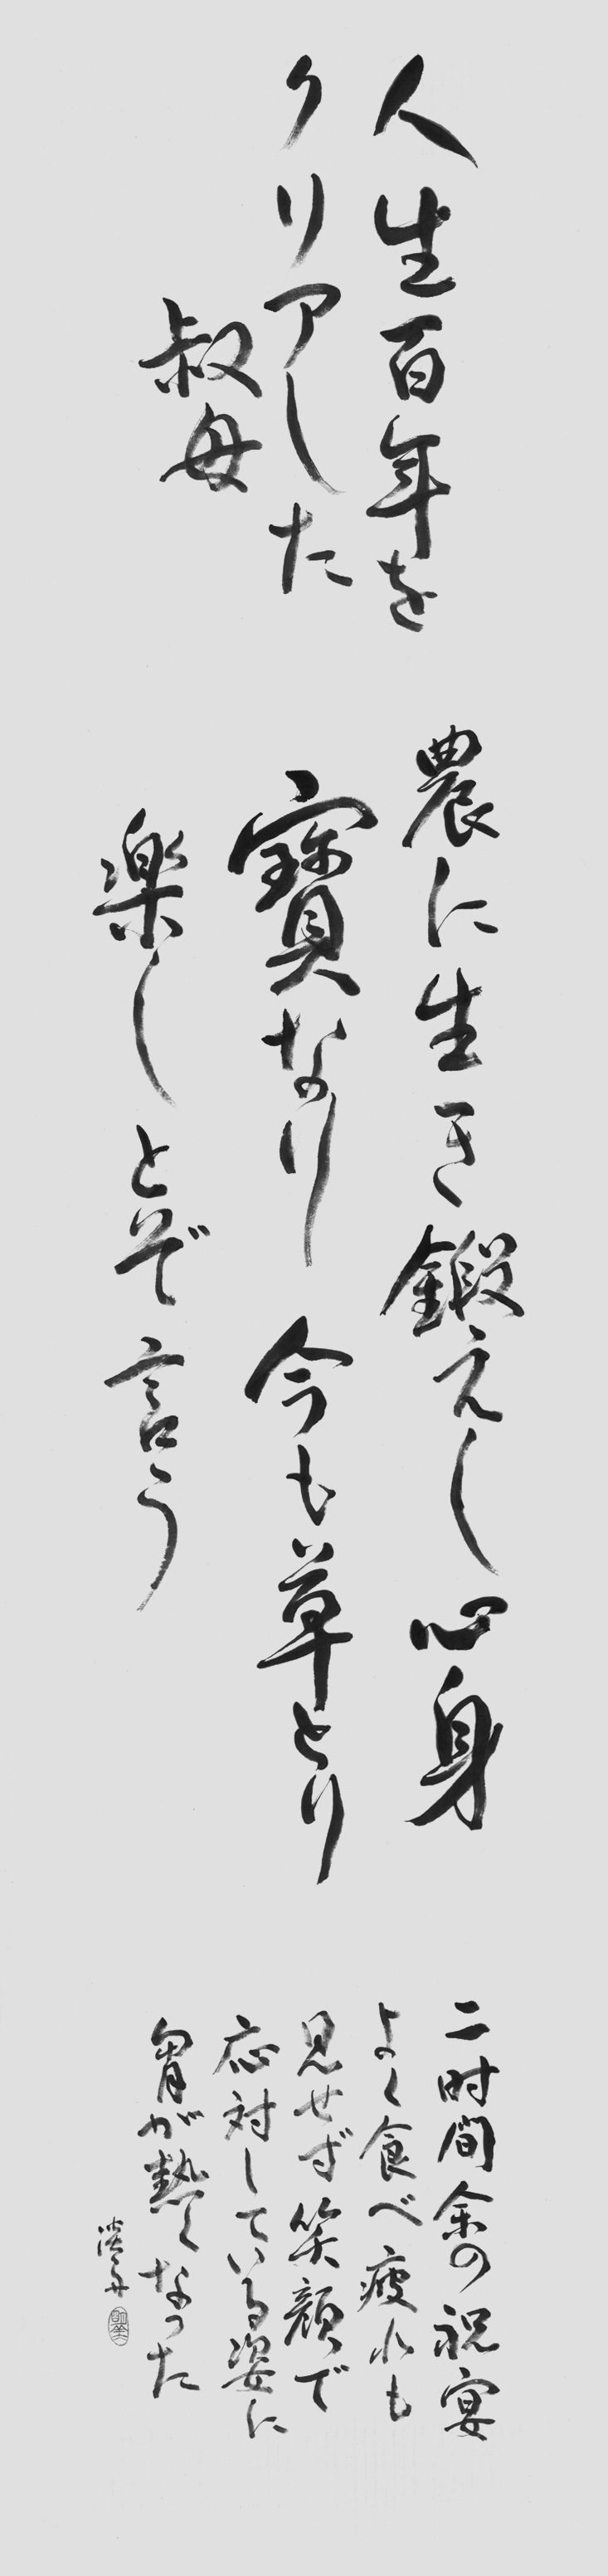 人生百年を
クリアした
叔母
農に生き鍛えし心身
寶なり 今も草とり
楽しとぞ言う
二時間余の祝宴
よく食べ疲れも
見せず笑顔で
応対している姿に
胸が熱くなった